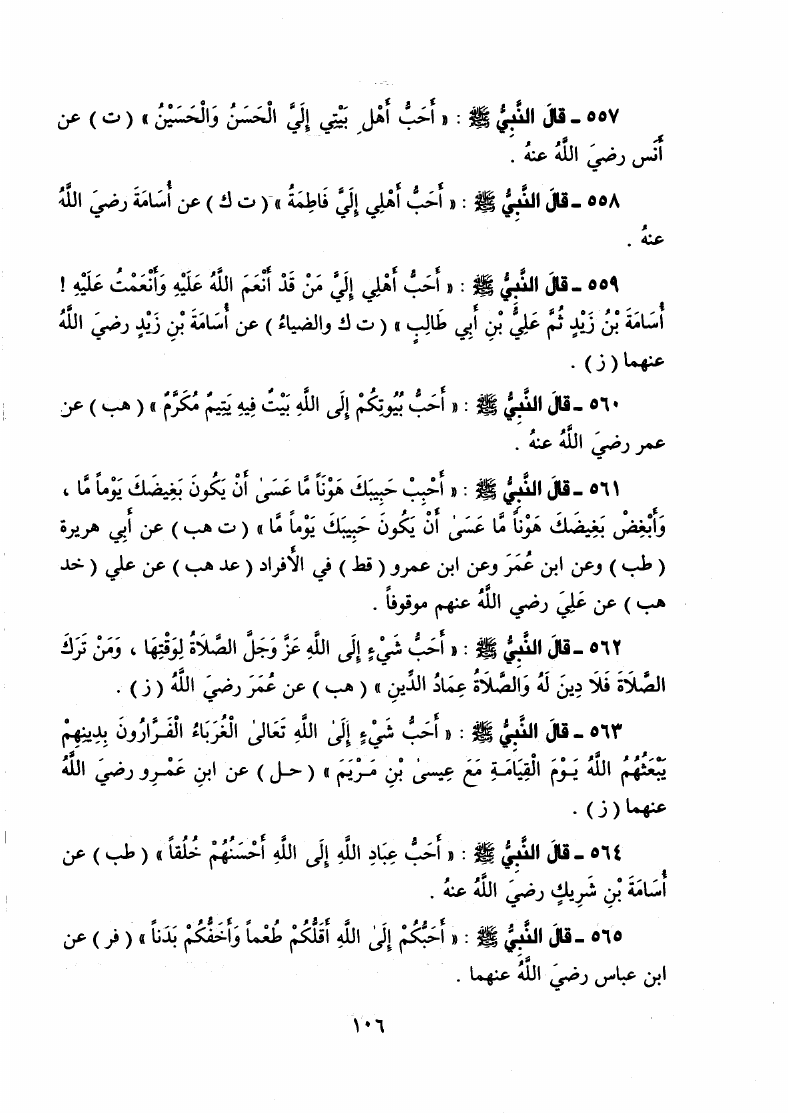 ٥٥٧ ـ قالَ النَّبِيُّ ﷺ : « أَحَبُّ أَهْلِ بَيْتِي إِلَيَّ الْحَسَنُ وَالْحَسَيْنُ » ( ت ) عن
أَنس رضيَ اللَّهُ عنهُ .
٥٥٨ ـ قالَ النَّبِيُّ ﷺ : « أَحَبُّ أَهْلِي إِلَيَّ فَاطِمَةُ » ( ت ك ) عن أُسَامَةَ رضيَ اللَّهُ
عنهُ .
٥٥٩ ـ قالَ النَّبِيُّ ﷺ : « أَحَبُّ أَهْلِي إِلَيَّ مَنْ قَدْ أَنْعَمَ اللَّهُ عَلَيْهِ وَأَنْعَمْتُ عَلَيْهِ !
أُسَامَةُ بْنُ زَيْدٍ ثُمَّ عَلِيُّ بْنِ أَبِي طَالِبٍ » ( ت ك والضياءُ ) عن أُسَامَةَ بْنِ زَيْدٍ رضيَ اللَّهُ
عنهما ( ز ) .
٥٦٠ ـ قالَ النَّبِيُّ ﷺ : « أَحَبُّ بُيُوتِكُمْ إِلَى اللَّهِ بَيْتٌ فِيهِ يَتِيمٌ مُكَرَّمٌ » ( هب ) عن
عمر رضيَ اللَّهُ عنهُ .
٥٦١ ـ قالَ النَّبِيُّ ﷺ : « أَحْبِبْ حَبِيبَكَ هَوْنَاً مَّا عَسَىٰ أَنْ يَكُونَ بَغِيضَكَ يَوْماً مَّا ،
وَأَبْغِضْ بَغِيضَكَ هَوْناً مَّا عَسَىٰ أَنْ يَكُونَ حَبِيبَكَ يَوْماً مَّا » ( ت هب ) عن أَبِي هريرة
( طب ) وعن ابن عُمَرَ وعن ابن عمرو ( قط ) في الأفراد ( عد هب ) عن علي ( خد
هب ) عن عَلِيَ رضي اللَّهُ عنهم موقوفاً .
٥٦٢ ـ قالَ النَّبِيُّ ﷺ : « أَحَبُّ شَيْءٍ إِلَى اللَّهِ عَزَّ وَجَلَّ الصَّلَاةُ لِوَقْتِهَا ، وَمَنْ تَرَكَ
الصَّلَاةَ فَلَا دِينَ لَهُ وَالصَّلَاةُ عِمَادُ الدِّينِ » ( هب ) عن عُمَرَ رضيَ اللَّهُ ( ز ) .
٥٦٣ ـ قالَ النَّبِيُّ ﷺ : « أَحَبُّ شَيْءٍ إِلَىٰ اللَّهِ تَعَالىٰ الْغُرَبَاءُ الْفَـرَّارُونَ بِدِينِهِمْ
يَبْعَثُهُمُ اللَّهُ يَـوْمَ الْقِيَامَـةِ مَعَ عِيسىٰ بْنِ مَـرْيَمَ » ( حـل ) عن ابنِ عَمْـرٍو رضيَ اللَّهُ
عنهما ( ز ) .
٥٦٤ ـ قالَ النَّبِيُّ ﷺ : « أَحَبُّ عِبَادِ اللَّهِ إِلَى اللَّهِ أَحْسَنُهُمْ خُلُقاً » ( طب ) عن
أُسَامَةَ بْنِ شَرِيكٍ رضيَ اللَّهُ عنهُ .
٥٦٥ ـ قالَ النَّبِيُّ ﷺ : « أَحَبُّكُمْ إِلَىٰ اللَّهِ أَقَلُّكُمْ طُعْماً وَأَخَفُّكُمْ بَدَناً » ( فر ) عن
ابن عباس رضيَ اللَّهُ عنهما .
١٠٦